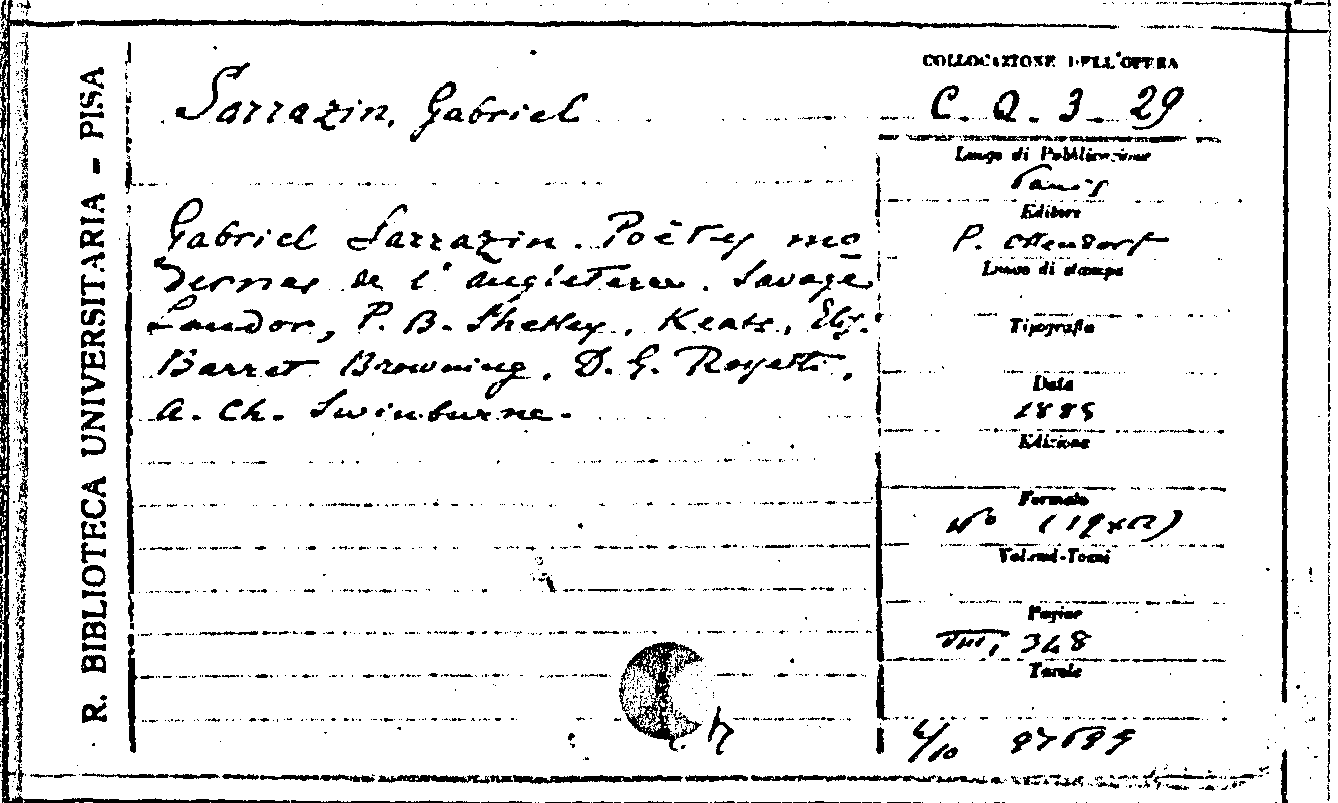 R. BIBLIOTECA UNIVERSITARIA - PISA
Sarrazin, Gabriel
Gabriel Sarrazin. Poëtes mo
dernes de l'Angleterre. Savage
Landor, P. B. Shelley, Keats, Elis.
Barret Browning, D. G. Rossetti,
A. Ch. Swinburne.
COLLOCAZIONE DELL'OPERA
C. Q. 3. 29
Luogo di Pubblicazione
Paris
Editore
P. Ollendorf
Luogo di stampa
Tipografia
Data
1885
Edizione
Formato
(19x12)
Volumi-Tomi
Pagine
VIII, 348
Tavole